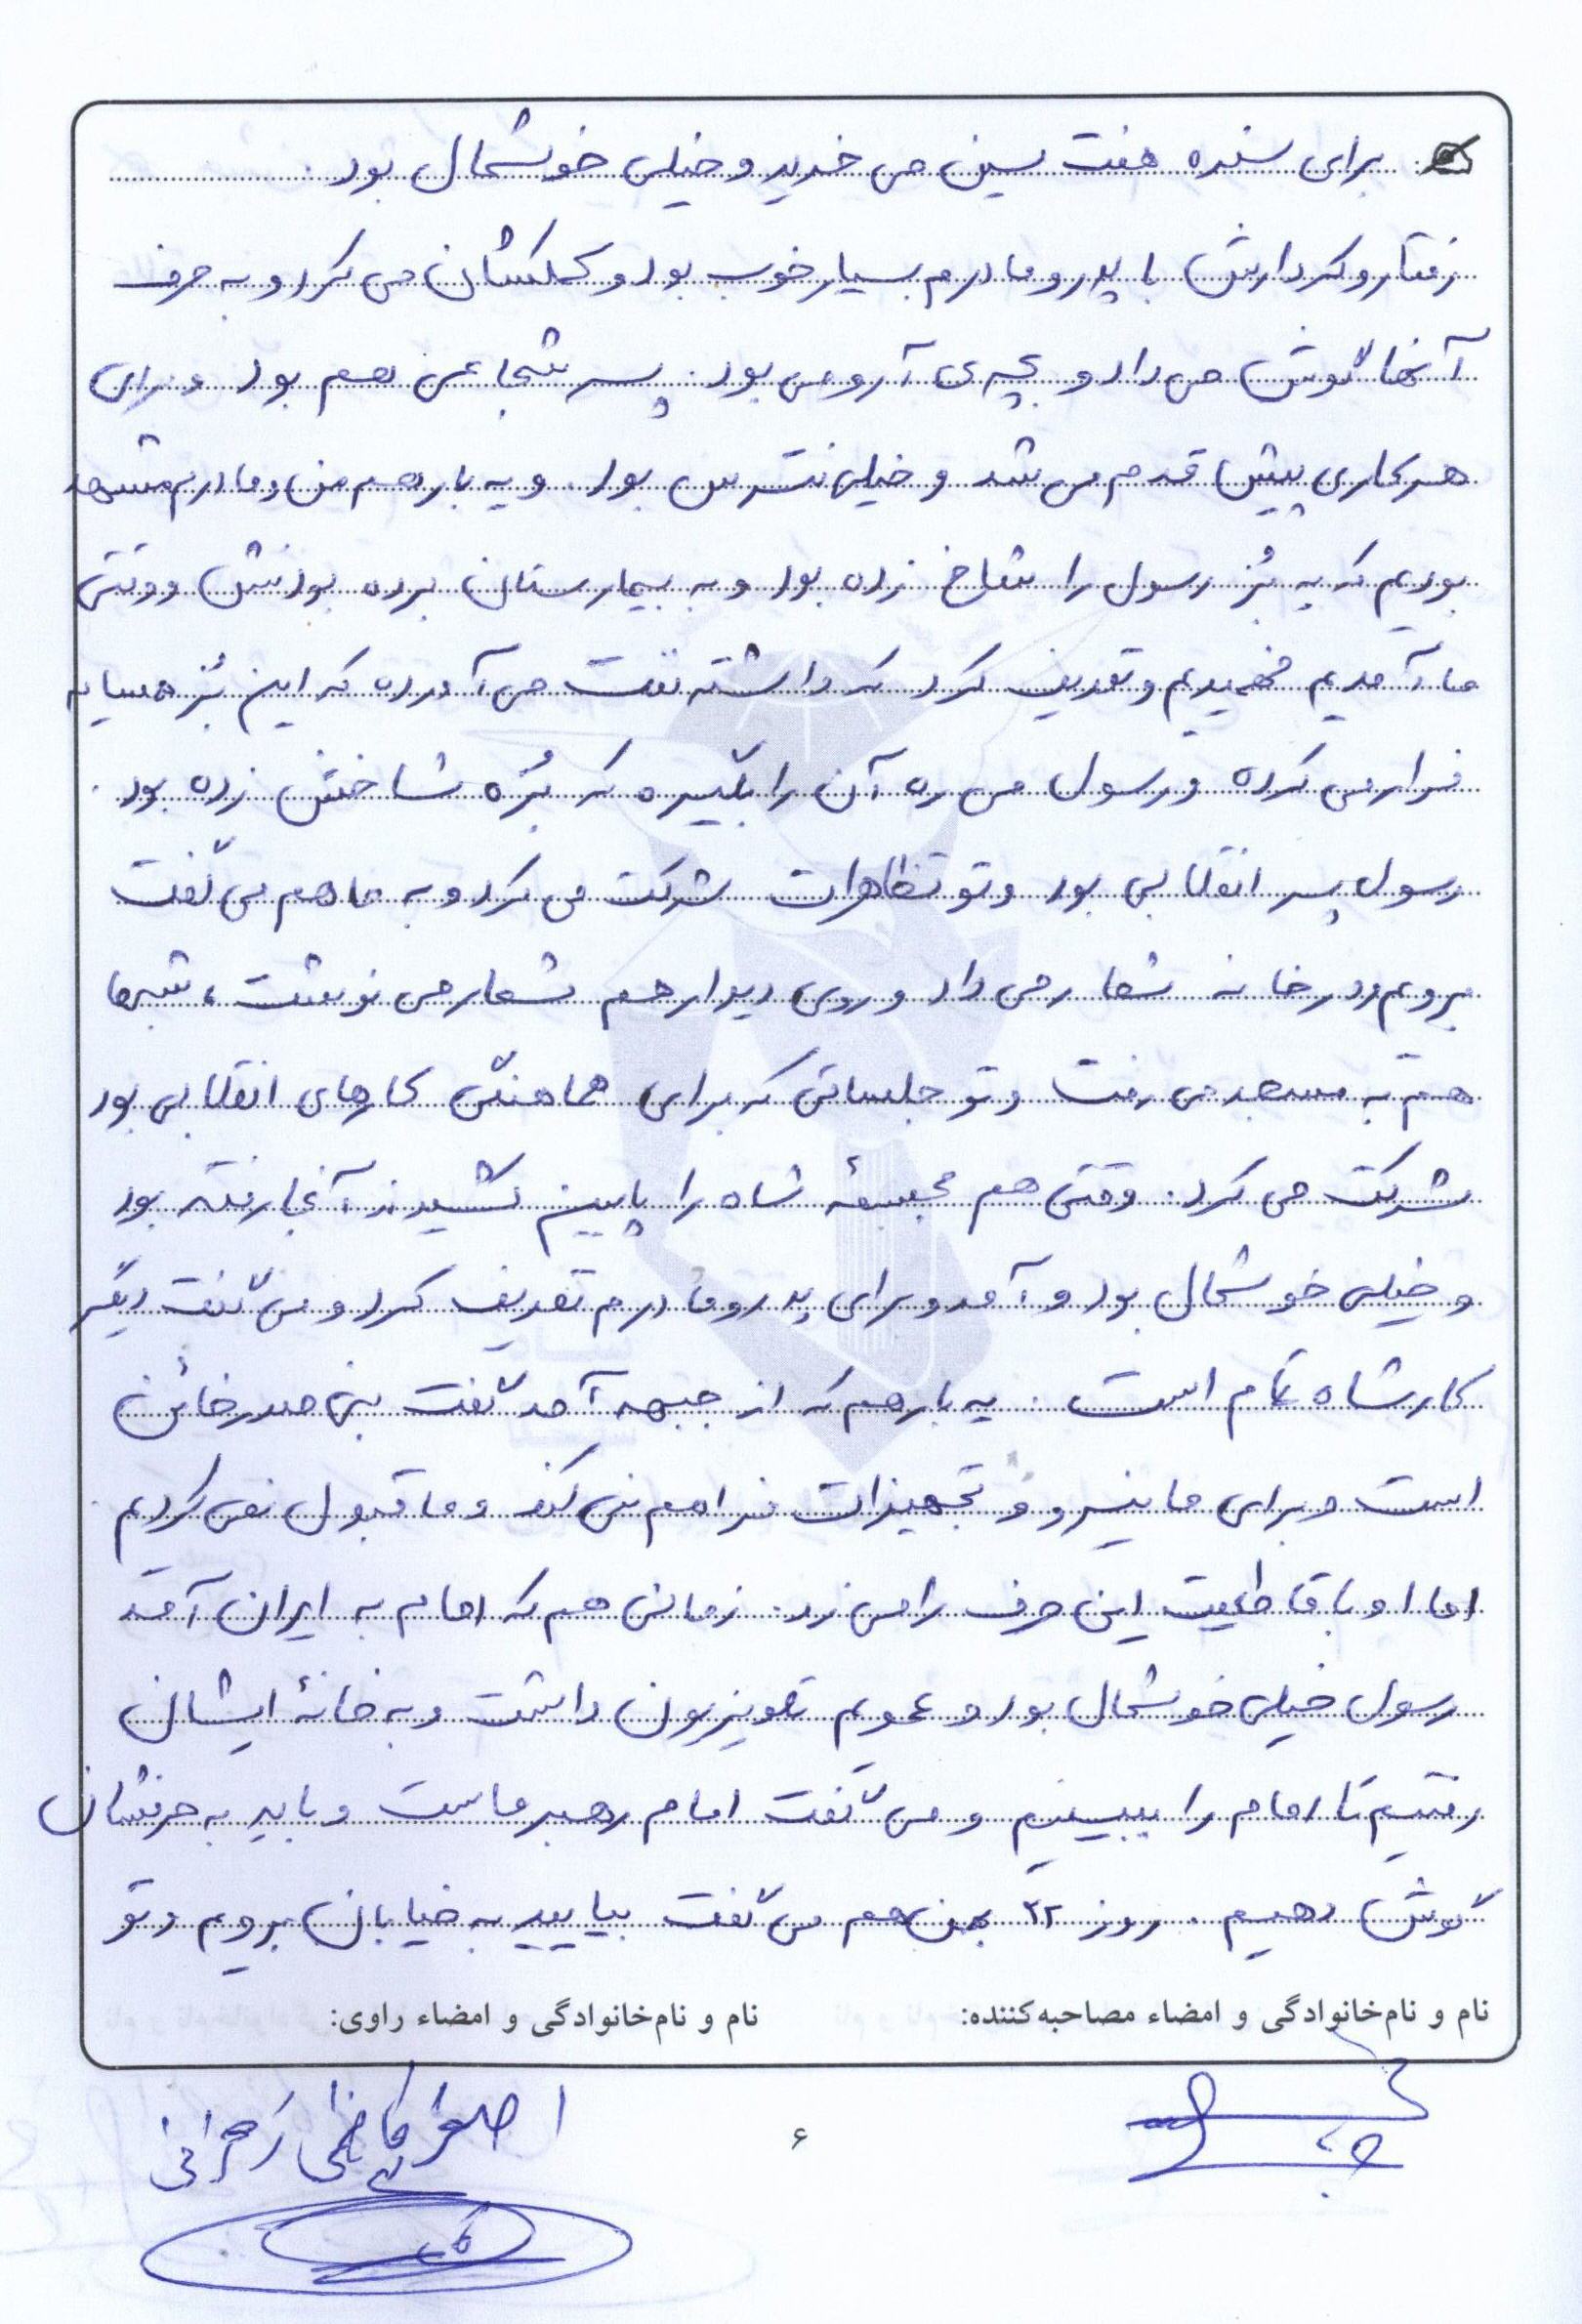 برای سفره هفت سین می خرید و خیلی خوشحال بود.
رفتار و کردارش با پدر و مادرم بسیار خوب بود و کمکشان می کرد و به حرف
آنها گوش می داد و بچه ی آرومی بود. پسر شجاعی هم بود و برای
هر کاری پیش قدم می شد و خیلی نترس بود. و یه بار هم من و مادرم مشهد
بودیم که یه بُز رسول را شاخ زده بود و به بیمارستان برده بودنش و وقتی
ما آمدیم فهمیدیم و تعریف کرد که داشته نفت می آورده که این بُز همسایه
فرار می کرده و رسول می ره آن را بگیره که بُزه شاخش زده بود.
رسول پسر انقلابی بود و تو تظاهرات شرکت می کرد و به ما هم می گفت
برویم در خانه شعار می داد و روی دیوار هم شعار می نوشت، شبها
هم به مسجد می رفت و تو جلساتی که برای هماهنگی کارهای انقلابی بود
شرکت می کرد. وقتی هم مجسمۀ شاه را پایین کشیدند آنجا رفته بود
و خیلی خوشحال بود و آمد و برای پدر و مادرم تعریف کرد و می گفت دیگر
کار شاه تمام است. یه بار هم که از جبهه آمد گفت بنی صدر خائن
است و برای ما نیرو و تجهیزات فراهم نمی کند و ما قبول نمی کردیم
اما او با قاطعیت این حرف را می زد. زمانی هم که امام به ایران آمد
رسول خیلی خوشحال بود و عمویم تلویزیون داشت و به خانۀ ایشان
رفتیم تا امام را ببینیم و می گفت امام رهبر ماست و باید به حرفشان
گوش دهیم. روز ۲۲ بهمن هم می گفت بیایید به خیابان برویم و تو
نام و نام‌خانوادگی و امضاء مصاحبه‌کننده: نام و نام‌خانوادگی و امضاء راوی:
اصغر کاظمی
۶